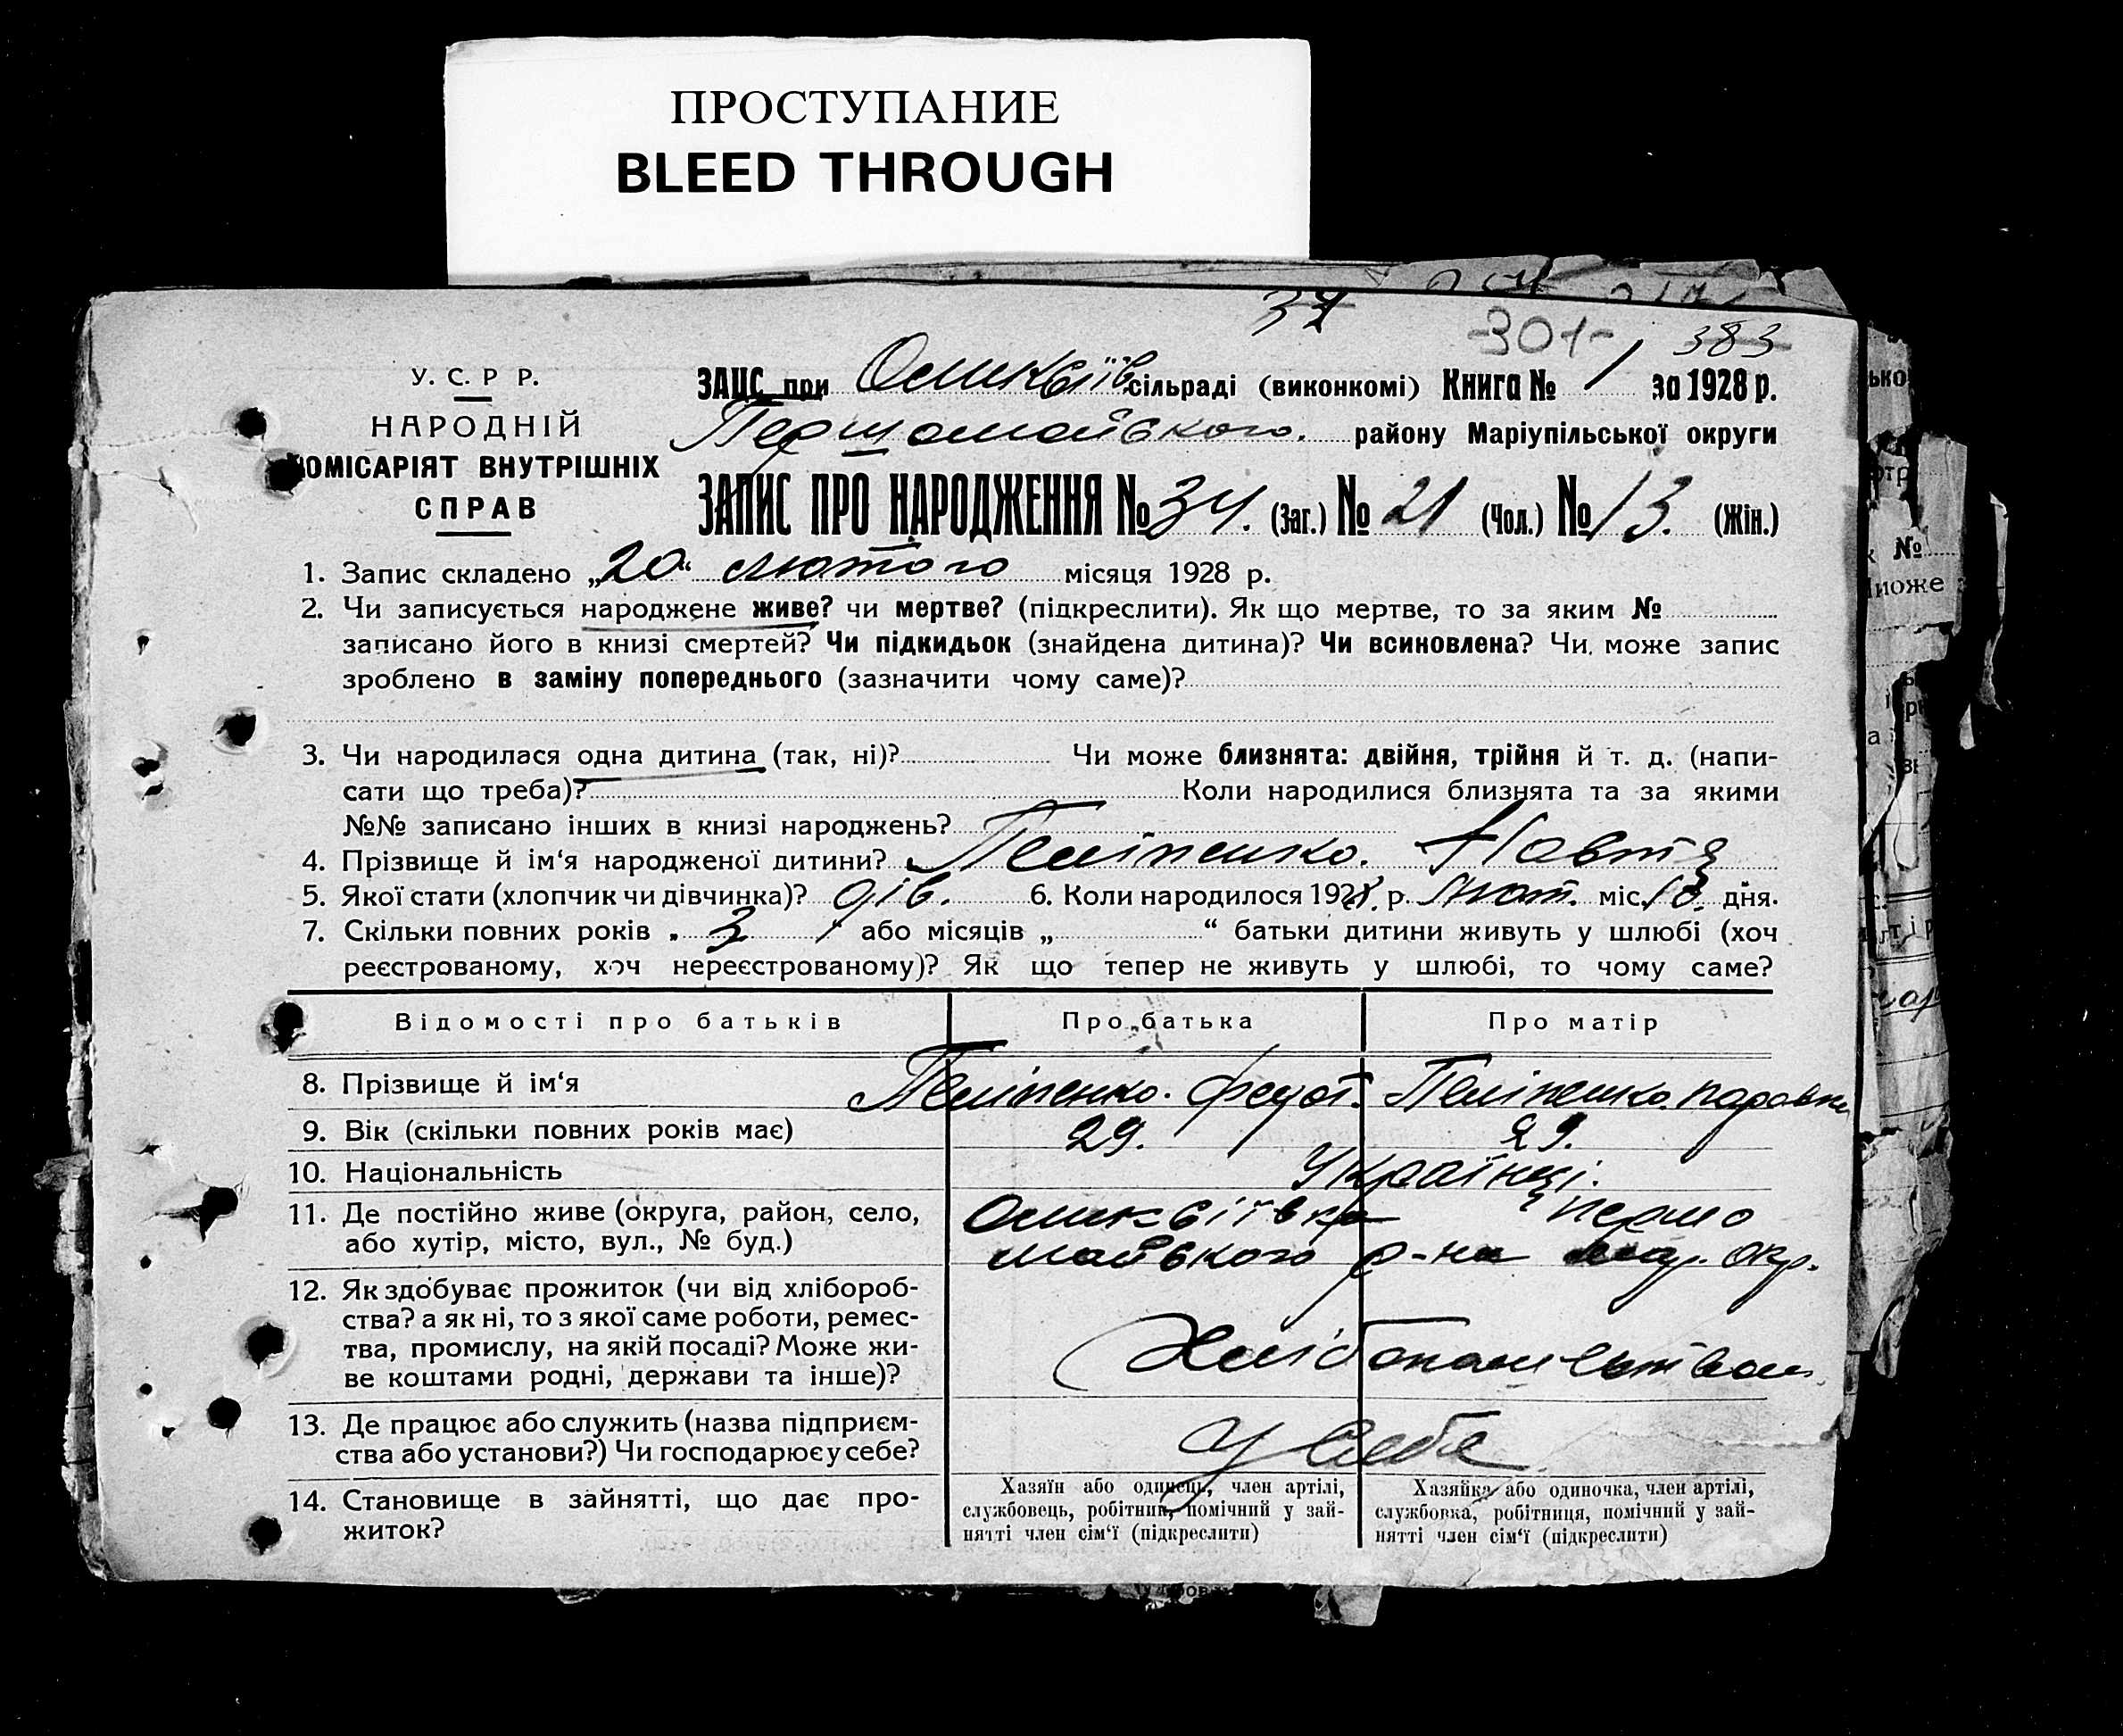 ПРОСТУПАНИЕ
BLEED THROUGH
37
-301-
383
У. С. Р Р.
НАРОДНІЙ
КОМІСАРІЯТ ВНУТРІШНІХ
СПРАВ
ЗАЦС при сільраді (виконкомі) Книга № 1 за 1928 р.
Першомайського. району Маріупільської округи
ЗАПИС ПРО НАРОДЖЕННЯ № 34. (Заг.) № 21 (Чол.) № 13. (Жін.)
1. Запис складено „20“ лютого місяця 1928 р.
2. Чи записується народжене живе? чи мертве? (підкреслити). Як що мертве, то за яким №
записано його в книзі смертей? Чи підкидьок (знайдена дитина)? Чи всиновлена? Чи може запис
зроблено в заміну попереднього (зазначити чому саме)?
3. Чи народилася одна дитина (так, ні)? Чи може близнята: двійня, трійня й т. д. (напи-
сати що треба)? Коли народилися близнята та за якими
№№ записано інших в книзі народжень?
4. Прізвище й ім‘я народженої дитини? Пеліпенко.
5. Якої стати (хлопчик чи дівчинка)? дів. 6. Коли народилося 1928 р. Лют. міс. дня.
7. Скільки повних років „ 3 “ або місяців „ “ батьки дитини живуть у шлюбі (хоч
реєстрованому, хоч нереєстрованому)? Як що тепер не живуть у шлюбі, то чому саме?
Відомості про батьків Про батька Про матір
8. Прізвище й ім‘я Пеліпенко. Федот. Пеліпенко
9. Вік (скільки повних років має) 29. 29.
10. Національність Українці.
11. Де постійно живе (округа, район, село, Першо
або хутір, місто, вул., № буд.) майського р-на Мар. окр.
12. Як здобуває прожиток (чи від хлібороб-
ства? а як ні, то з якої саме роботи, ремес-
тва, промислу, на якій посаді? Може жи-
ве коштами родні, держави та інше)?
13. Де працює або служить (назва підприєм-
ства або установи?) Чи господарює у себе? У себе
14. Становище в зайнятті, що дає про-
житок?
Хазяїн або одинець, член артілі,
службовець, робітник, помічний у зай-
нятті член сім‘ї (підкреслити)
Хазяйка або одиночка, член артілі,
службовка, робітниця, помічний у зай-
нятті член сім‘ї (підкреслити)